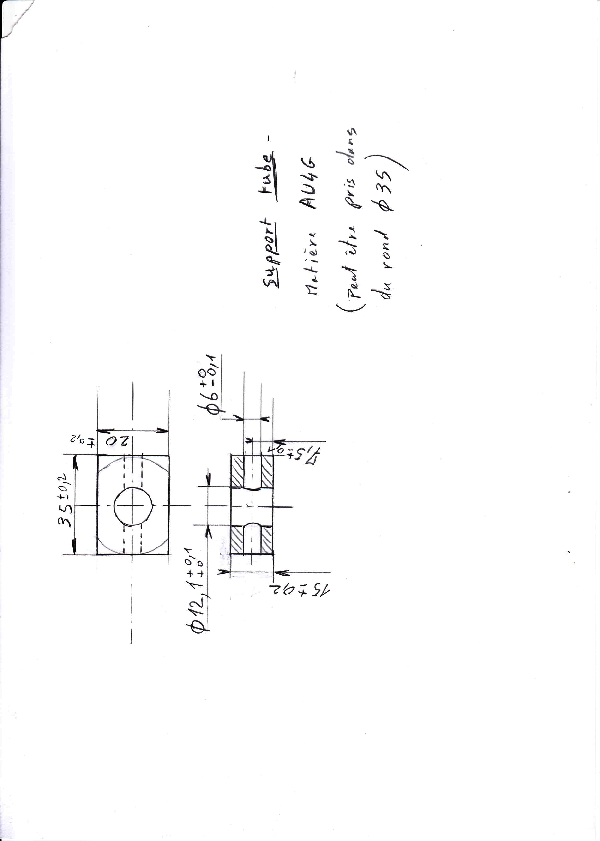 Support tube -
Matière AU4G
(Peut être pris dans
du rond Ø35)
35±0,2
20 ±0,2
Ø12,1 +0,1 ±0
Ø6 ±0 -0,1
7,5±0,1
15±0,2